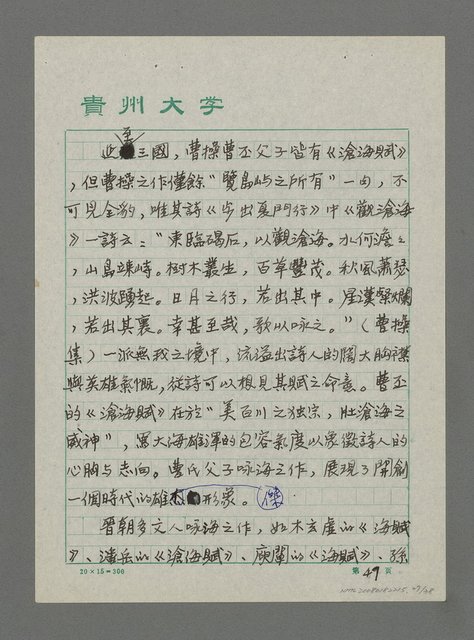 貴州大学
延至三國，曹操曹丕父子皆有《滄海賦》
，但曹操之作僅餘"覽島屿之所有"一句，不
可見全豹，唯其詩《步出夏門行》中《觀滄海
》一詩云："東臨碣石，以觀滄海。水何澹々
，山島竦峙。樹木叢生，百草豐茂。秋風萧瑟
，洪波踴起。日月之行，若出其中。星漢燦爛
，若出其裏。幸甚至哉，歌以咏之。"（曹操
集）一派無我之境中，流溢出詩人的闊大胸襟
與英雄氣慨，從詩可以想見其賦之命意。曹丕
的《滄海賦》在於"美百川之独宗，壯滄海之
威神"，寫大海雄渾的包容氣度以象徵詩人的
心胸与志向。曹氏父子咏海之作，展現了開創
一個時代的雄杰形象。
晋朝多文人咏海之作，如木玄虚的《海賦
》、潘岳的《滄海賦》、庾闡的《海賦》、孫
20×15=300
第49頁